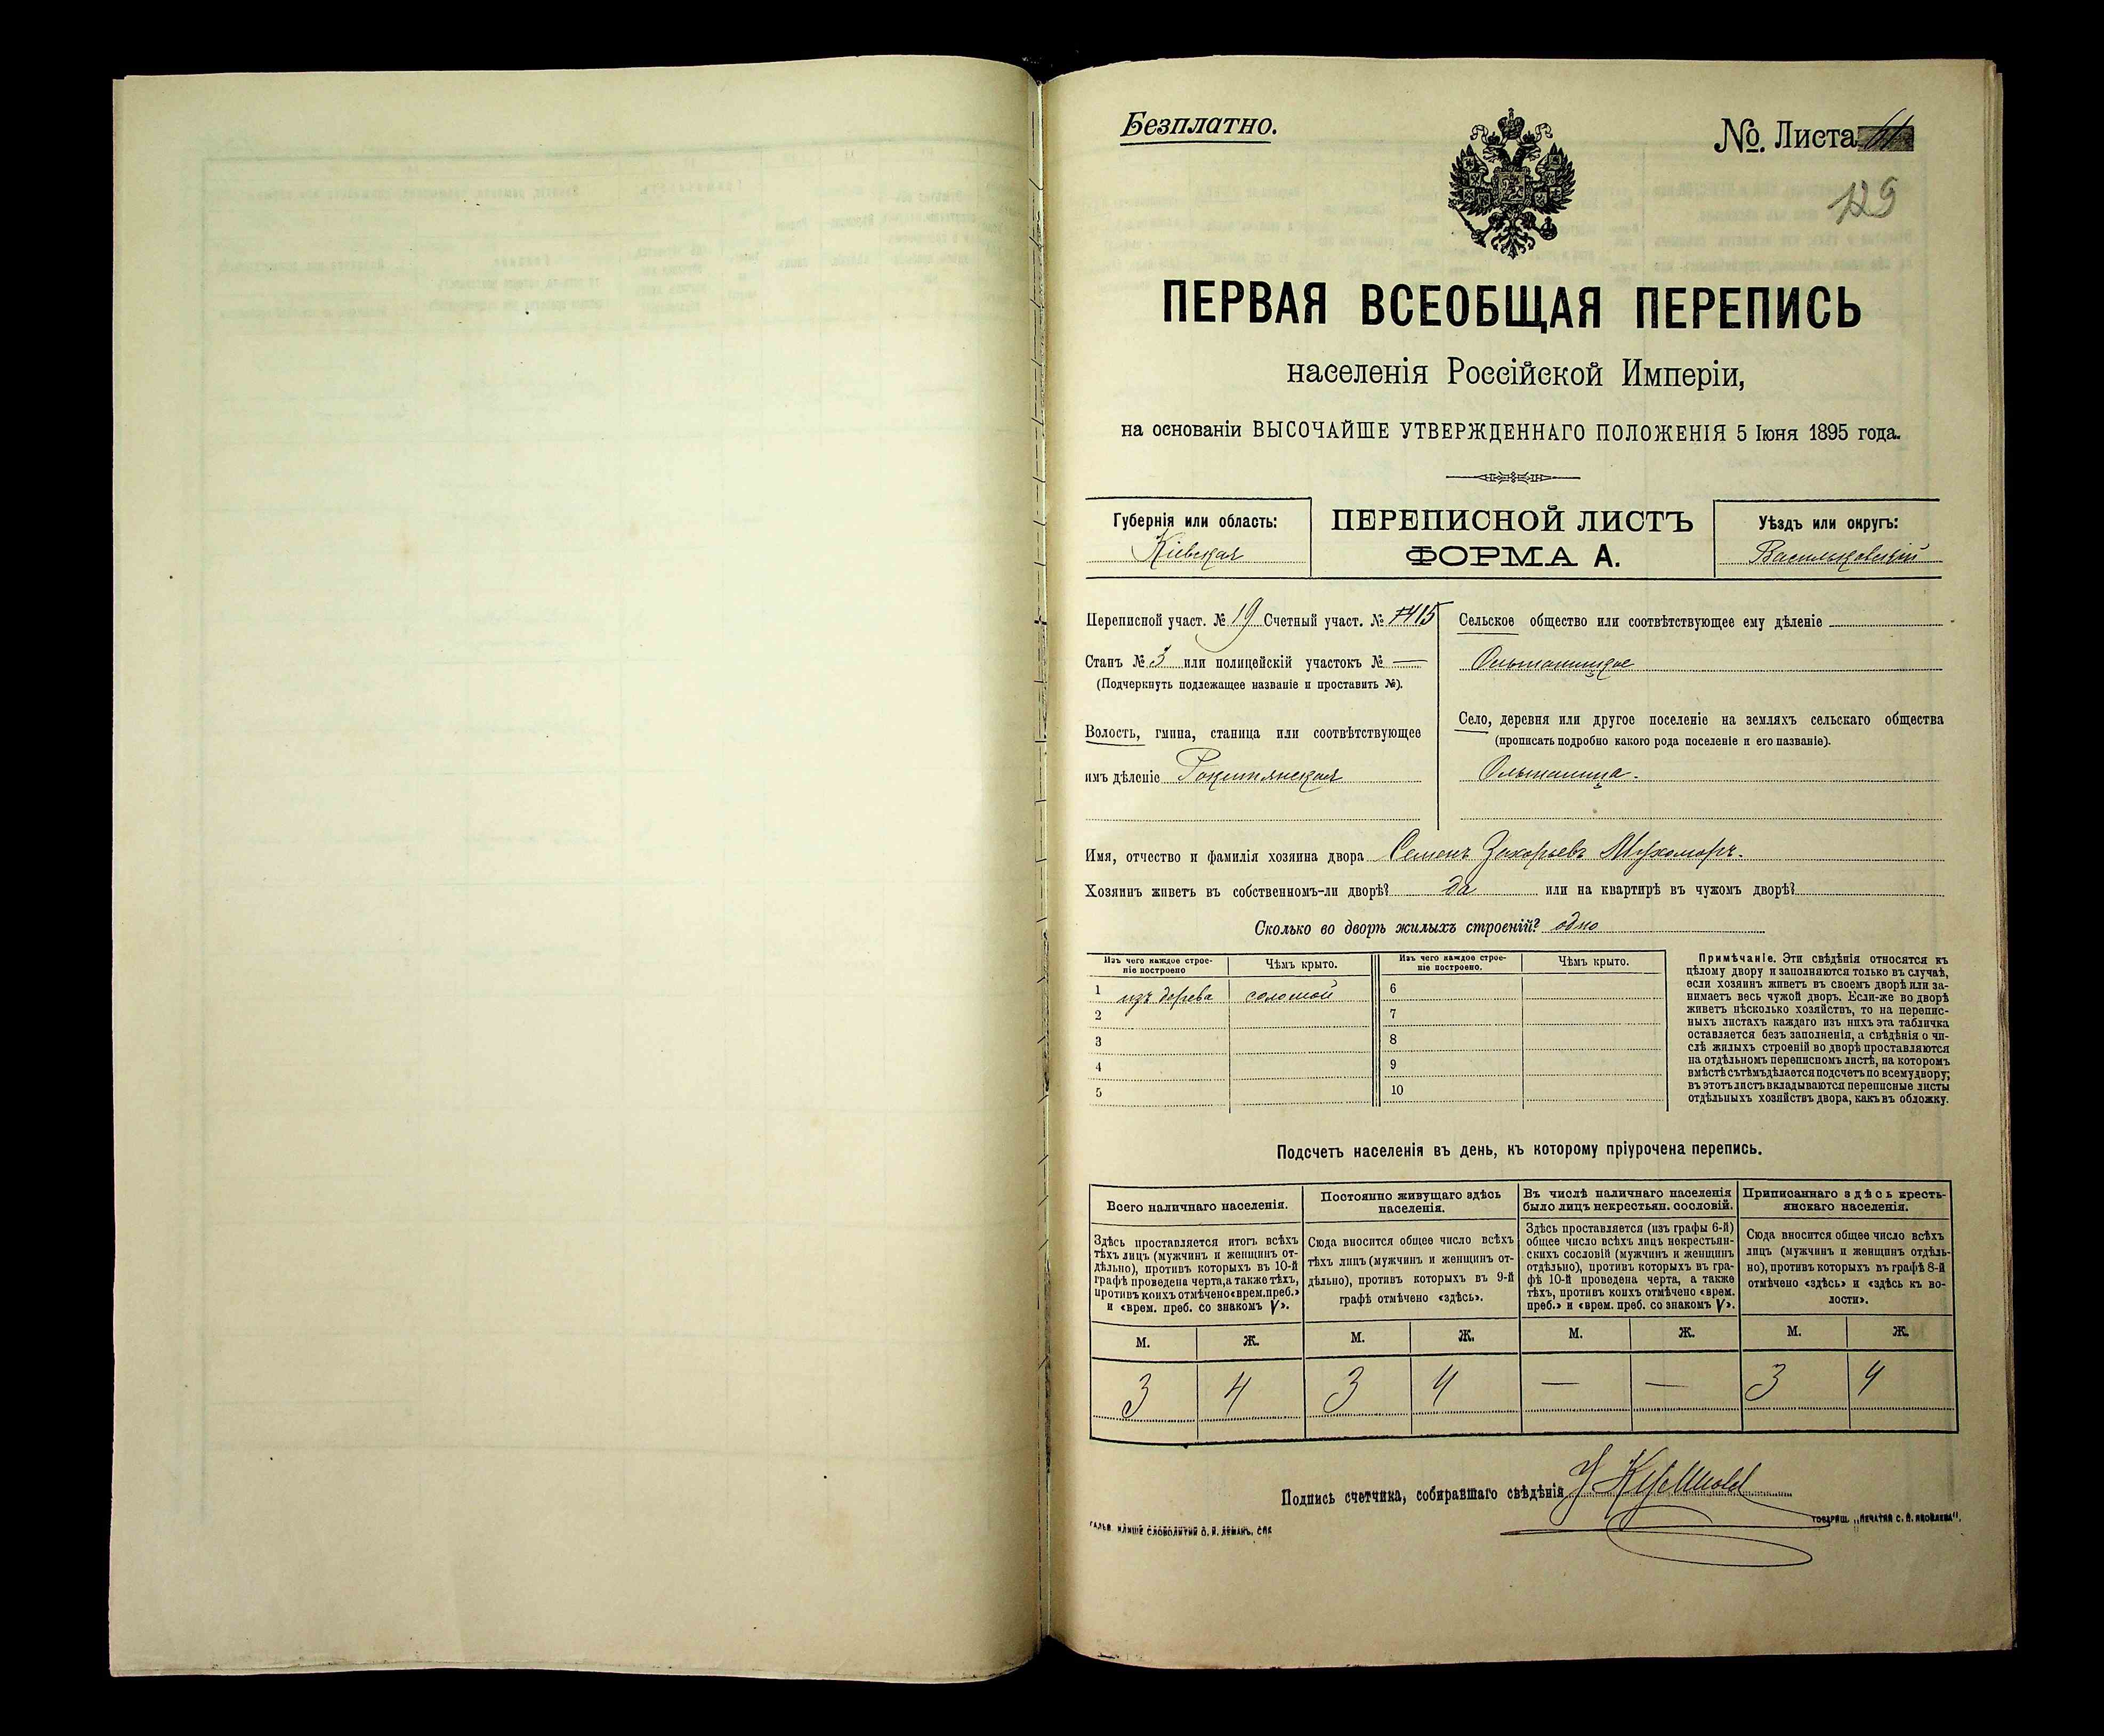 Безплатно.
№. Листа
129
ПЕРВАЯ ВСЕОБЩАЯ ПЕРЕПИСЬ
населенія Россійской Имперіи,
на основаніи ВЫСОЧАЙШЕ УТВЕРЖДЕННАГО ПОЛОЖЕНІЯ 5 Іюня 1895 года.
Губернія или область:
Кіевская
ПЕРЕПИСНОЙ ЛИСТЪ
ФОРМА А.
Уѣздъ или округъ:
Васильковскій
Переписной участ. № 19 Счетный участ. №
Станъ № 3 или полицейскій участокъ № —
(Подчеркнуть подлежащее названіе и проставить №).
Волость, гмина, станица или соотвѣтствующее
имъ дѣленіе Рокитянская
Сельское общество или соотвѣтствующее ему дѣленіе
Ольшаницкое
Село, деревня или другое поселеніе на земляхъ сельскаго общества
(прописать подробно какого рода поселеніе и его названіе).
Ольшаница.
Имя, отчество и фамилія хозяина двора Семенъ Захарьевъ Мухоморъ.
Хозяинъ живетъ въ собственномъ-ли дворѣ? да или на квартирѣ въ чужомъ дворѣ?
Сколько во дворѣ жилыхъ строеній? одно
Изъ чего каждое строе-
ніе построено
Чѣмъ крыто.
1 изъ дерева соломой
2
3
4
5
Изъ чего каждое строе-
ніе построено.
Чѣмъ крыто.
6
7
8
9
10
Примѣчаніе. Эти свѣдѣнія относятся къ
цѣлому двору и заполняются только въ случаѣ,
если хозяинъ живетъ въ своемъ дворѣ или за-
нимаетъ весь чужой дворъ. Если-же во дворѣ
живетъ нѣсколько хозяйствъ, то на перепис-
ныхъ листахъ каждаго изъ нихъ эта табличка
оставляется безъ заполненія, а свѣдѣнія о чи-
слѣ жилыхъ строеній во дворѣ проставляются
на отдѣльномъ переписномъ листѣ, на которомъ
вмѣстѣ съ тѣмъ дѣлается подсчетъ по всему двору;
въ этотъ листъ вкладываются переписные листы
отдѣльныхъ хозяйствъ двора, какъ въ обложку.
Подсчетъ населенія въ день, къ которому пріурочена перепись.
Всего наличнаго населенія.
Здѣсь проставляется итогъ всѣхъ
тѣхъ лицъ (мужчинъ и женщинъ от-
дѣльно), противъ которыхъ въ 10-й
графѣ проведена черта, а также тѣхъ,
противъ коихъ отмѣчено «врем. преб.»
и «врем. преб. со знакомъ V».
М. Ж.
3 4
Постоянно живущаго здѣсь
населенія.
Сюда вносится общее число всѣхъ
тѣхъ лицъ (мужчинъ и женщинъ от-
дѣльно), противъ которыхъ въ 9-й
графѣ отмѣчено «здѣсь».
М. Ж.
3 4
Въ числѣ наличнаго населенія
было лицъ некрестьян. сословій.
Здѣсь проставляется (изъ графы 6-й)
общее число всѣхъ лицъ некрестьян-
скихъ сословій (мужчинъ и женщинъ
отдѣльно), противъ которыхъ въ гра-
фѣ 10-й проведена черта, а также
тѣхъ, противъ коихъ отмѣчено «врем.
преб.» и «врем. преб. со знакомъ V».
М. Ж.
— —
Приписаннаго здѣсь кресть-
янскаго населенія.
Сюда вносится общее число всѣхъ
лицъ (мужчинъ и женщинъ отдѣль-
но), противъ которыхъ въ графѣ 8-й
отмѣчено «здѣсь» и «здѣсь къ во-
лости».
М. Ж.
3 4
Подпись счетчика, собиравшаго свѣдѣнія
СЛОВОЛИТНИ О. И. ЛЕМАНЪ, СПБ
ТОВАРИЩ. „ПЕЧАТНЯ С. П. ЯКОВЛЕВА".